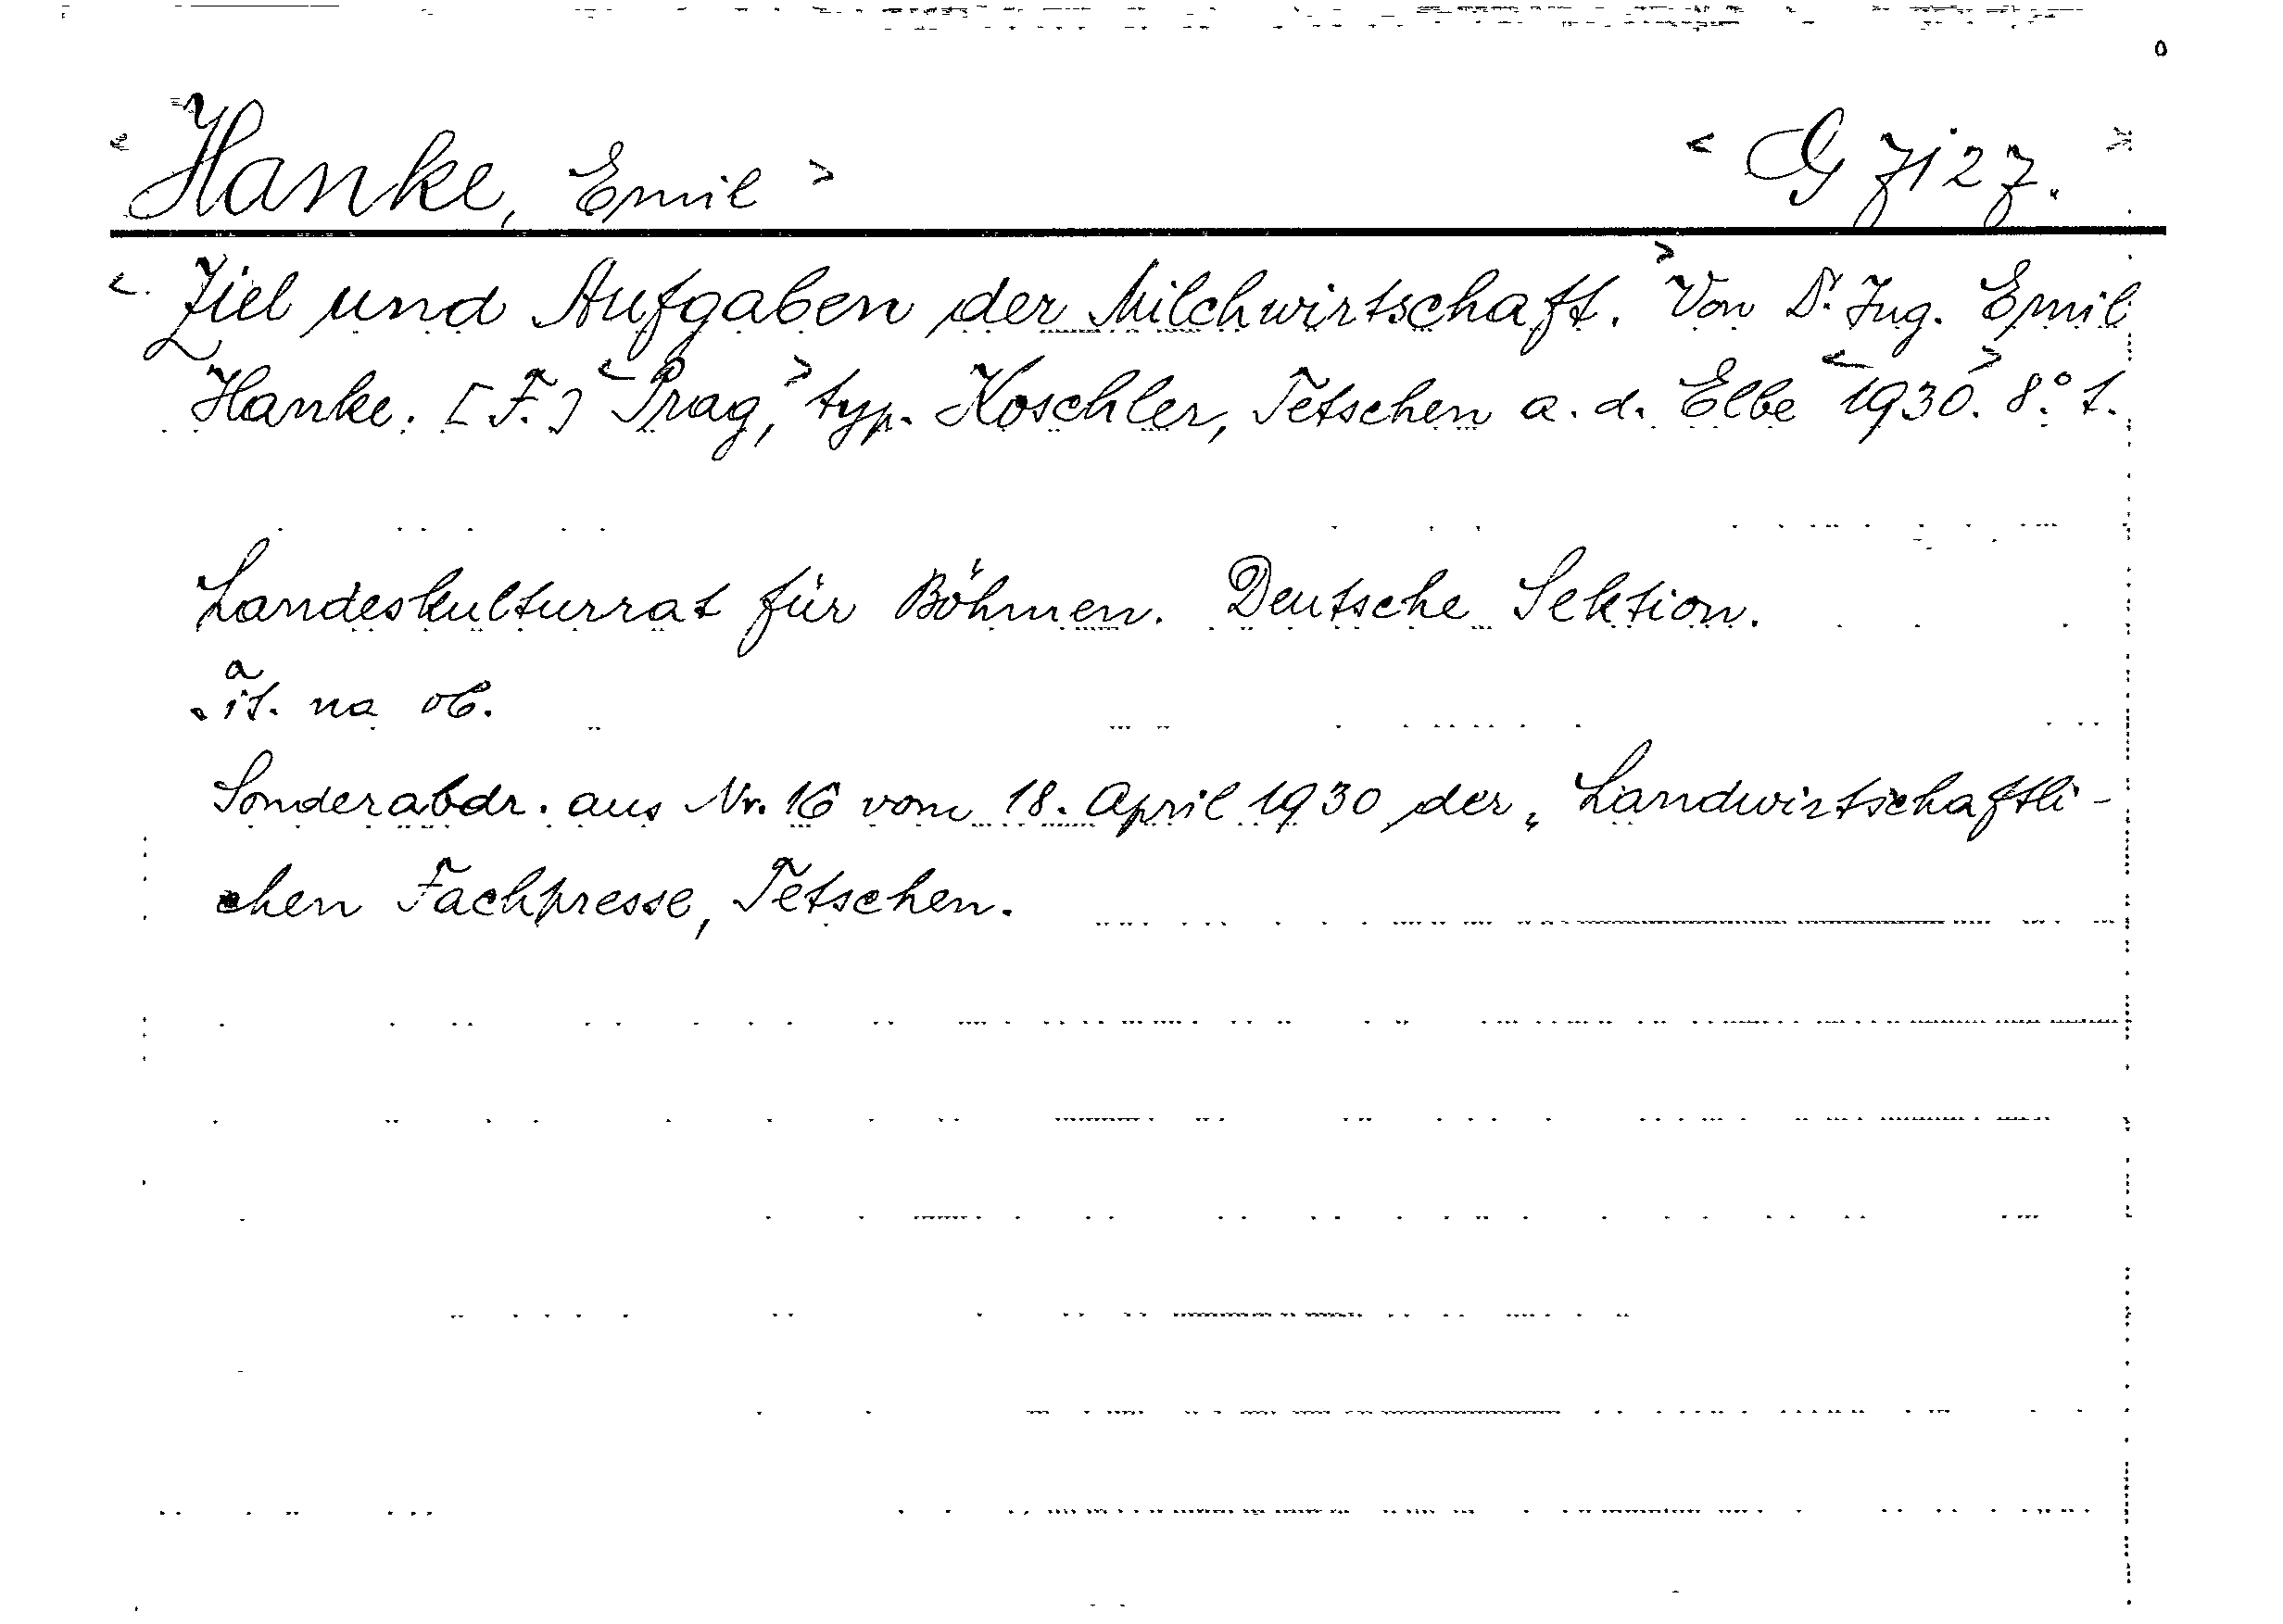 « Hanke, Emil > < G 7127. >
< Ziel und Aufgaben der Milchwirtschaft. > Von Dr. Ing. Emil
Hanke. [F.] < Prag, > typ. Koschler, Tetschen a. d. Elbe < 1930. > 8.° 1.
Landeskulturrat für Böhmen. Deutsche Sektion.
a
it. na ob.
Sonderabdr. aus Nr. 16 vom 18. April 1930 der „Landwirtschaftli-
chen Fachpresse, Tetschen.